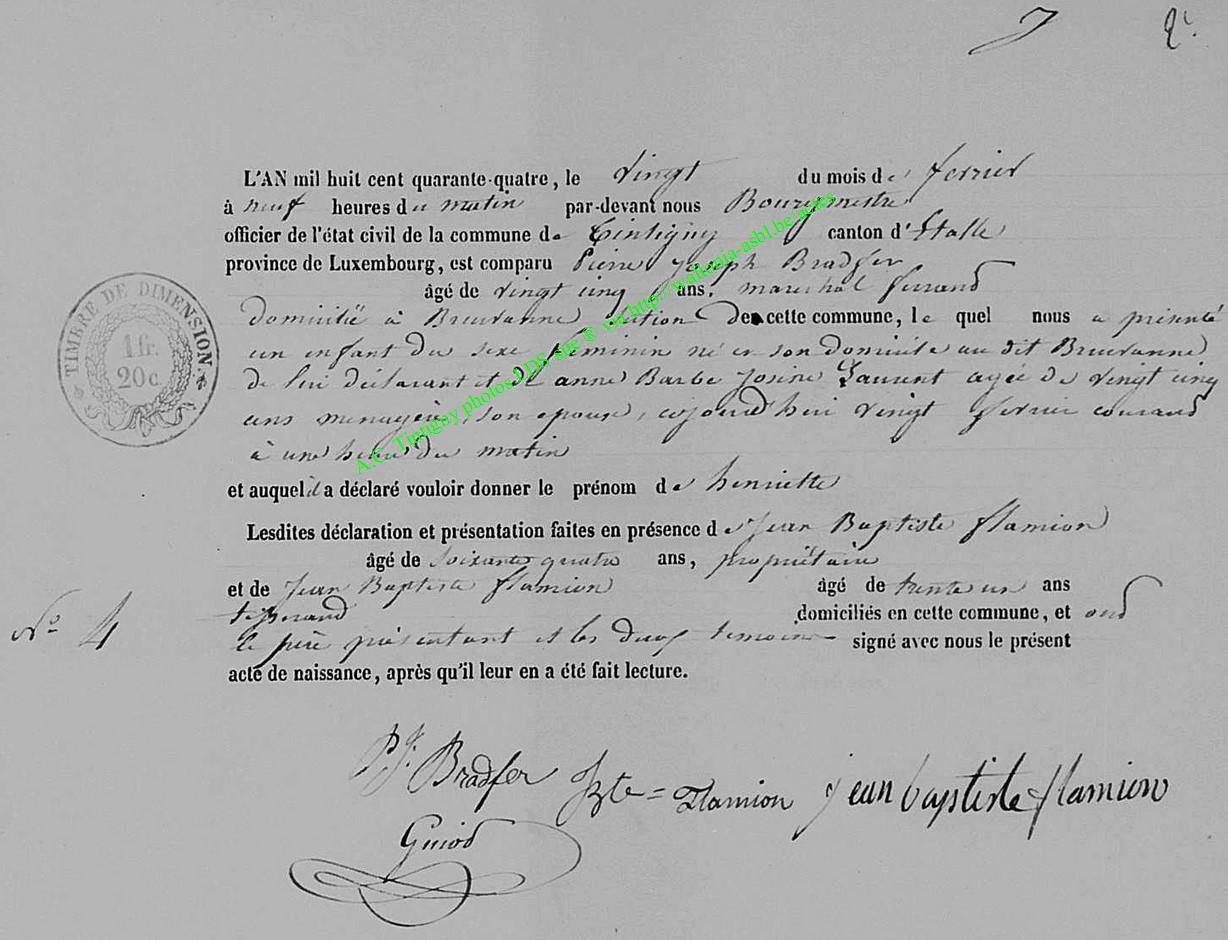 J 2.
L'AN mil huit cent quarante-quatre, le vingt du mois de ferrier
à neuf heures du matin par-devant nous Bourgmestre
officier de l'état civil de la commune de Tintigny canton d'Etalle
province de Luxembourg, est comparu Pierre Joseph Bradfer
âgé de vingt cinq ans, marechal ferrand
domicilié à Breuvanne section de cette commune, le quel nous a présenté
un enfant du sexe féminin né en son domicile au dit Breuvanne
de lui déclarant et de anne Barbe Josine Laurent agée de vingt cinq
ans menagère, son epouse, aujourd'hui vingt fevrier courand
à une heure du matin
et auquel il a déclaré vouloir donner le prénom de henriette
Lesdites déclaration et présentation faites en présence de Jean Baptiste flamion
âgé de soixante quatre ans, propriétaire
et de Jean Baptiste flamion âgé de trente un ans
tisserand domiciliés en cette commune, et ond
le père présentant et les deux temoins signé avec nous le présent
acte de naissance, après qu'il leur en a été fait lecture.
N° 4
TIMBRE DE DIMENSION.
1 fr.
20 c
P J. Bradfer Jbte = Flamion jean baptiste flamion
Guiod
A.C. Tintigny photos LDS-sue ® via http://wallonia-asbl.be/actes